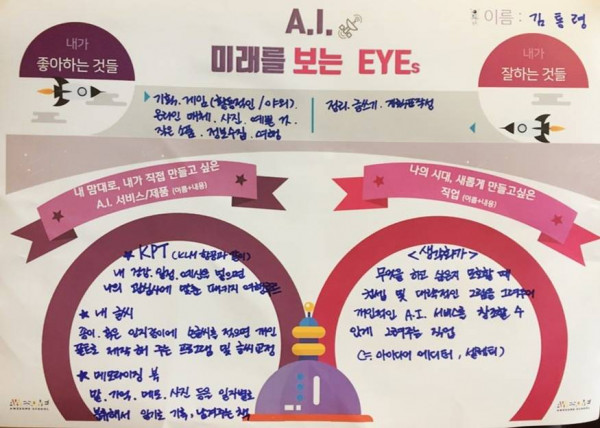 A.I.
미래를 보는 EYEs
이름 : 김 통 령
내가
좋아하는 것들
내가
잘하는 것들
기획. 게임(활동적인 / 야외).
온라인 매체. 사진. 예쁜
작은 소품. 정보수집. 여행
정리. 글쓰기.
내 맘대로, 내가 직접 만들고 싶은
A.I. 서비스/제품 (이름+내용)
나의 시대, 새롭게 만들고싶은
직업 (이름+내용)
★ KPT (KLM 항공과 같이)
내 강강, 일정, 예산을 넣으면
나의 관심사에 맞춘 패키지 여행
★ 내 글씨
종이, 혹은 손글씨를 적으면 개인
폰트로 제작 해 주는 프로그램 및 글씨교정
★ 메모라이징 북
말. 기억. 메모. 사진 등을 일자별로
분류해서 알기로 기록, 남겨주는 책
<생각화가>
무엇을 하고 싶은지 모호할 때
컨셉 및 대략적인 그림을 그려주어
개인적인 A.I. 서비스를 창조할 수
있게 그려주는 직업
(= 아이디어 에디터,
AWESOME SCHOOL
AWESOME SCHOOL